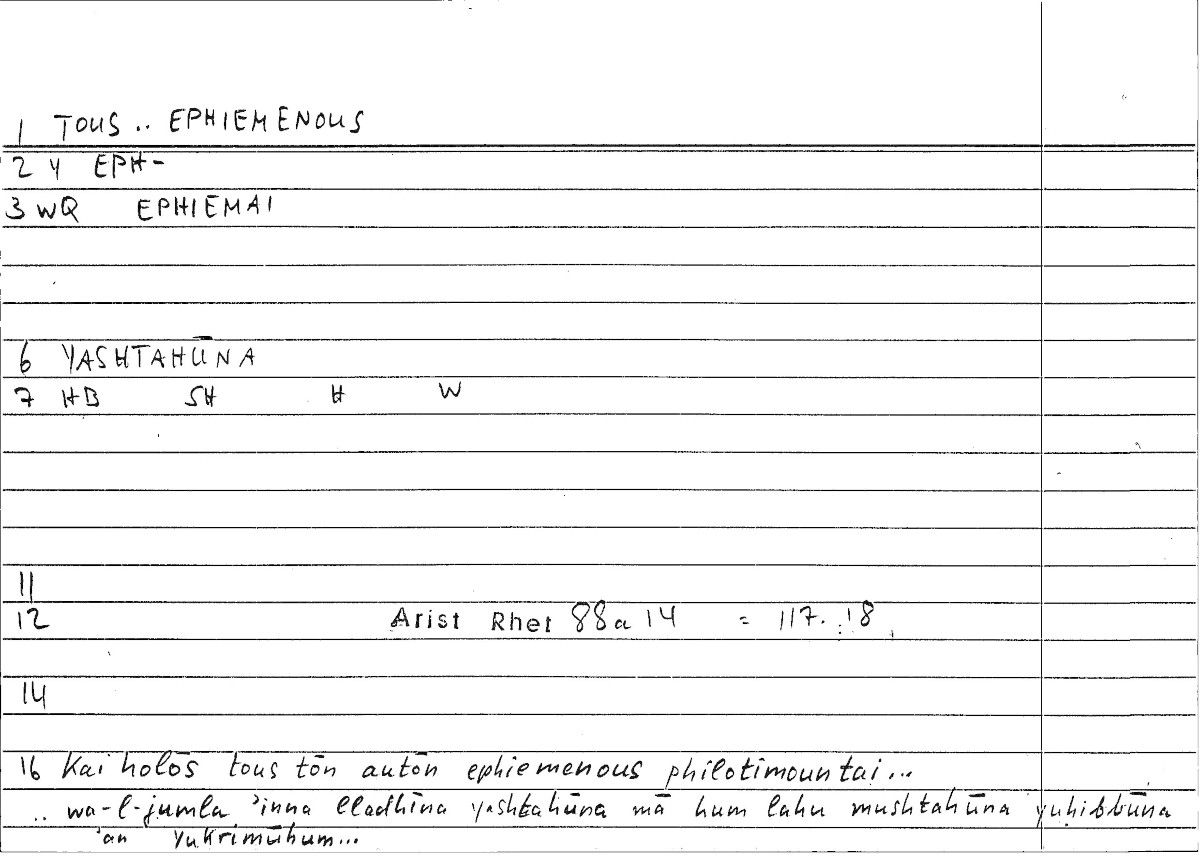 1 TOUS .. EPHIEMENOUS
2 Y EPH-
3 WQ EPHIEMAI
6 YASHTAHŪNA
7 HB SH H W
11
12 Arist Rhet 88a 14 = 117. 18
14
16 Kai holōs tous tōn autōn ephiemenous philotimountai...
.. wa-l-jumla 'inna lladhīna yashtahūna mā hum lahu mushtahūna yuhibbūna
'an yukrimūhum...